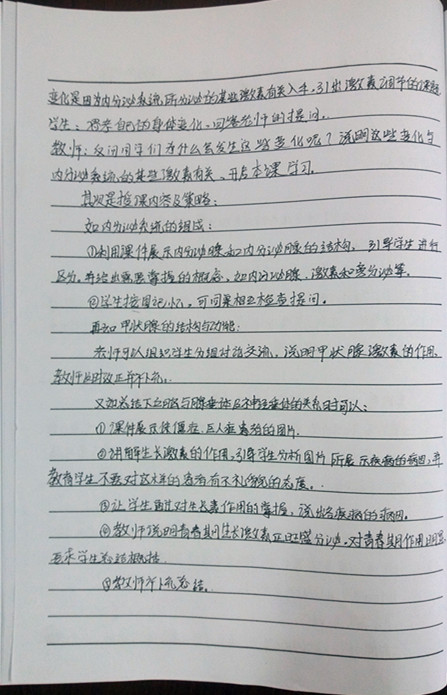 变化是因为内分泌系统所分泌的某些激素有关入手。引出激素调节的课题
学生：将来自己的身体变化、回答老师的提问。
教师：反问同学们为什么会发生这些变化呢？说明这些变化与
内分泌系统的某些激素有关、开启本课学习。
其次是授课内容及策略：
如内分泌系统的组成：
①利用课件展示内分泌腺和内分泌腺的结构， 引导学生进行
区分。并给出需要掌握的概念，如内分泌腺，激素和旁分泌等。
②学生按图记忆，可同桌相互检查提问。
再如甲状腺的结构与功能：
老师可以组织学生分组讨论交流，说明甲状腺激素的作用、
教师及时改正并补充。
又如总结下丘脑与腺垂体及神经垂体的关系时可以：
①课件展示侏儒症、巨人症患者的图片
②讲解生长激素的作用，引导学生分析图片所展示疾病的病因，并
教育学生不要对这样的患者有不礼貌的态度。
③让学生通过对生长素作用的掌握，说出各疾病的病因。
④教师说明青春期生长激素正旺盛分泌。对青春期作用明显
要求学生总结概括
⑤教师补充总结。